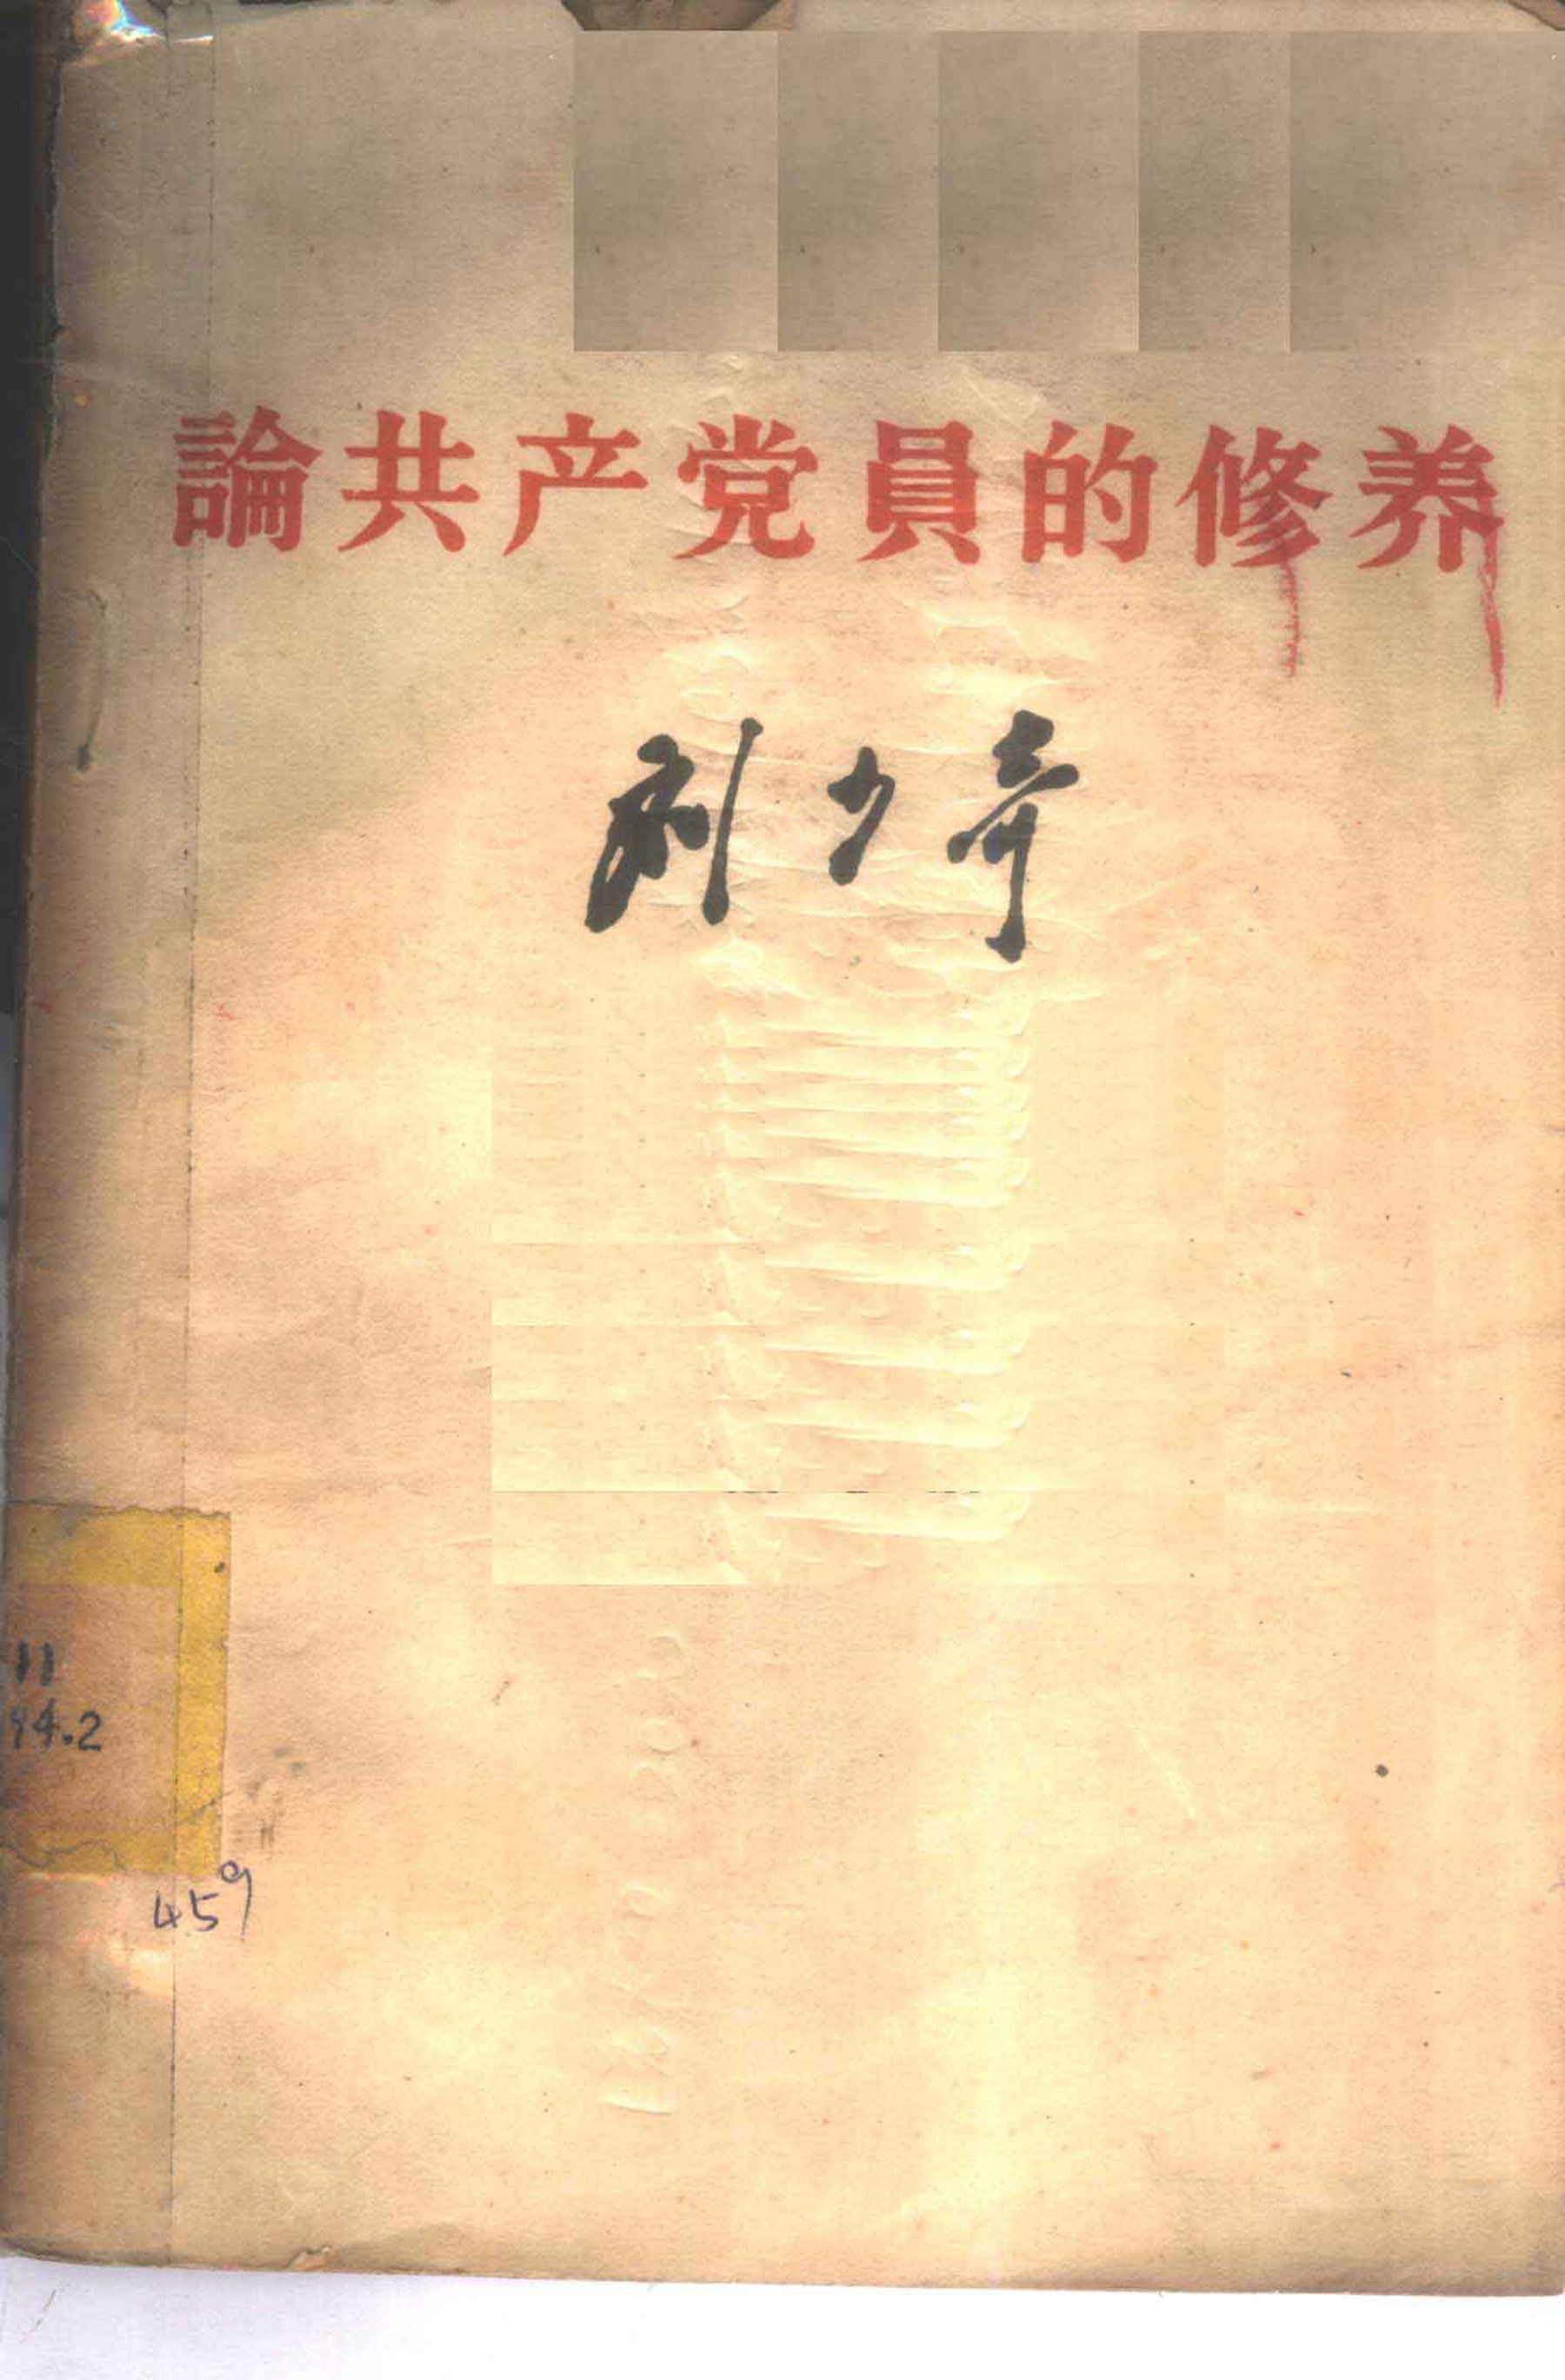 論共产党員的修养
刘少奇
11
94.2
459